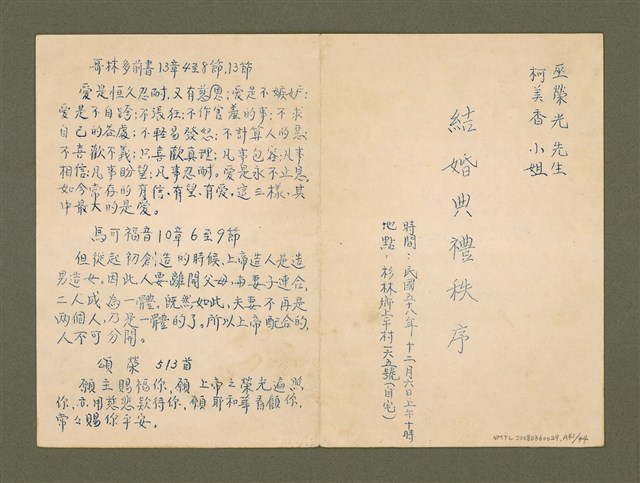 巫榮光先生
柯美香小姐
結婚典禮秩序
時間：民國五八年十二月六日上午十時
地點：杉林鄉上平村一六五號(自宅)
哥林多前書13章4至8節,13節
愛是恒久忍耐,又有慈恩;愛是不嫉妒;
愛是不自誇;不張狂;不作害羞的事;不求
自己的益處;不輕易發怒;不計算人的惡,
不喜歡不義;只喜歡真理;凡事包容;凡事
相信;凡事盼望;凡事忍耐。愛是永不止息,
如今常存的有信,有望,有愛,這三樣,其
中最大的是愛。
馬可福音10章6至9節
但從起初創造的時候,上帝造人是造
男造女。因此人要離開父母,與妻子連合,
二人成為一體。既然如此,夫妻不再是
兩個人,乃是一體的了。所以上帝配合的,
人不可分開。
頌榮 513首
願主賜福你,願上帝之榮光遍照
你,亦用慈悲款待你,願耶和華看顧你,
常々賜你平安。